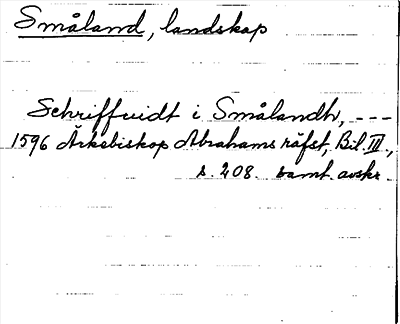 Småland, landskap
Schriffuidt i Smålandh, ---
1596 Ärkebiskop Abrahams räfst, Bil. III,
s. 208. samt. avskr.